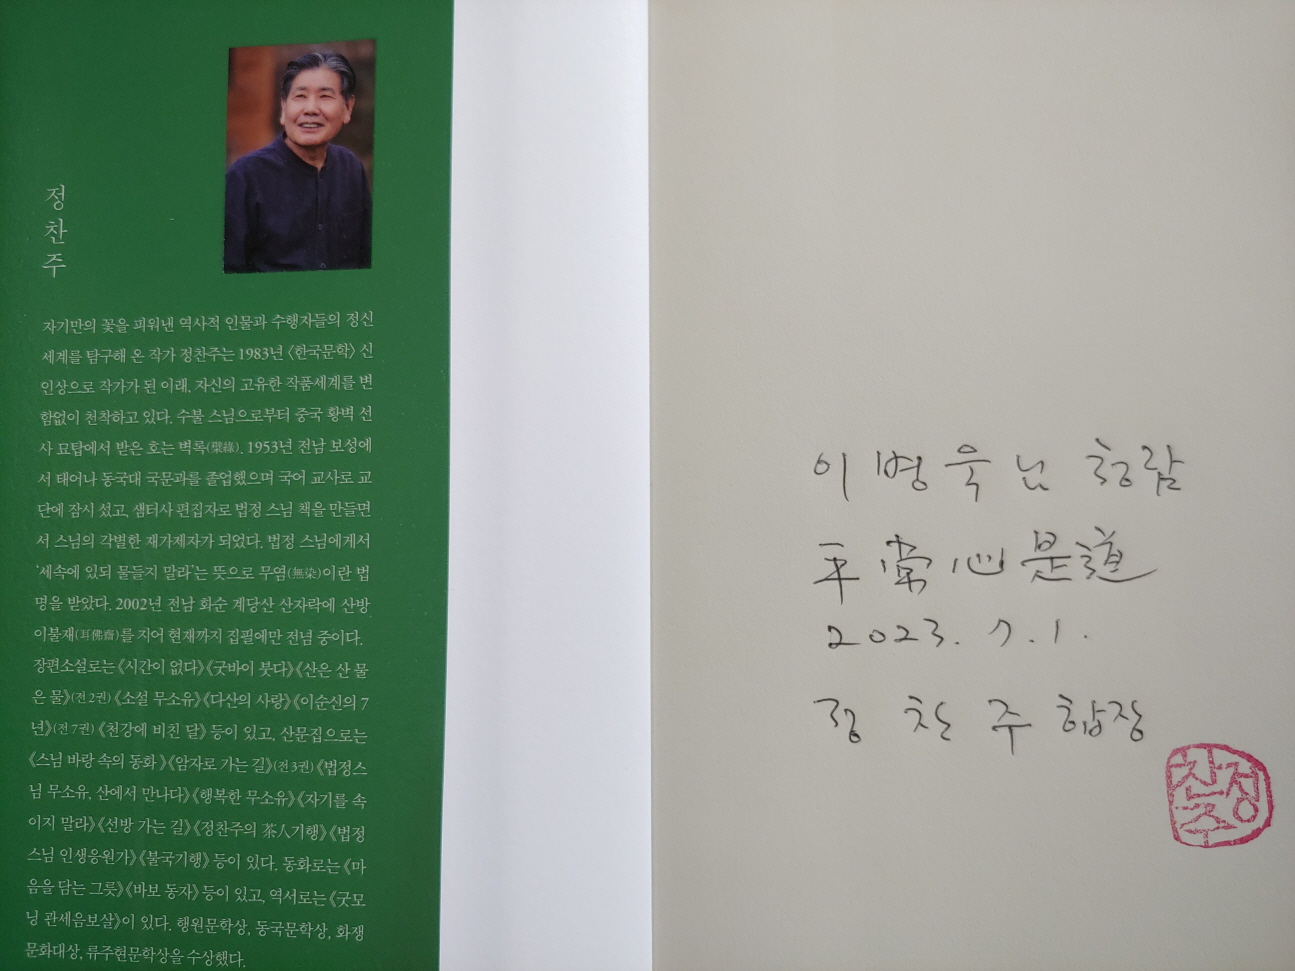 정찬주
자기만의 꽃을 피워낸 역사적 인물과 수행자들의 정신
세계를 탐구해 온 작가 정찬주는 1983년 〈한국문학〉 신
인상으로 작가가 된 이래, 자신의 고유한 작품세계를 변
함없이 천착하고 있다. 수불 스님으로부터 중국 황벽 선
사 묘탑에서 받은 호는 벽록(檗綠). 1953년 전남 보성에
서 태어나 동국대 국문과를 졸업했으며 국어 교사로 교
단에 잠시 섰고, 샘터사 편집자로 법정 스님 책을 만들면
서 스님의 각별한 재가제자가 되었다. 법정 스님에게서
‘세속에 있되 물들지 말라’는 뜻으로 무염(無染)이란 법
명을 받았다. 2002년 전남 화순 계당산 산자락에 산방
이불재(耳佛齋)를 지어 현재까지 집필에만 전념 중이다.
장편소설로는 《시간이 없다》《굿바이 붓다》《산은 산 물
은 물》(전 2권) 《소설 무소유》《다산의 사랑》《이순신의 7
년》(전 7권) 《천강에 비친 달》 등이 있고, 산문집으로는
《스님 바랑 속의 동화》《암자로 가는 길》(전 3권) 《법정스
님 무소유, 산에서 만나다》《행복한 무소유》《자기를 속
이지 말라》《선방 가는 길》《정찬주의 茶人기행》《법정
스님 인생응원가》《불국기행》 등이 있다. 동화로는 《마
음을 담는 그릇》《바보 동자》 등이 있고, 역서로는 《굿모
닝 관세음보살》이 있다. 행원문학상, 동국문학상, 화쟁
문화대상, 류주현문학상을 수상했다.
이병욱님 청람
平常心是道
2023. 7. 1.
정찬주 합장
정찬주